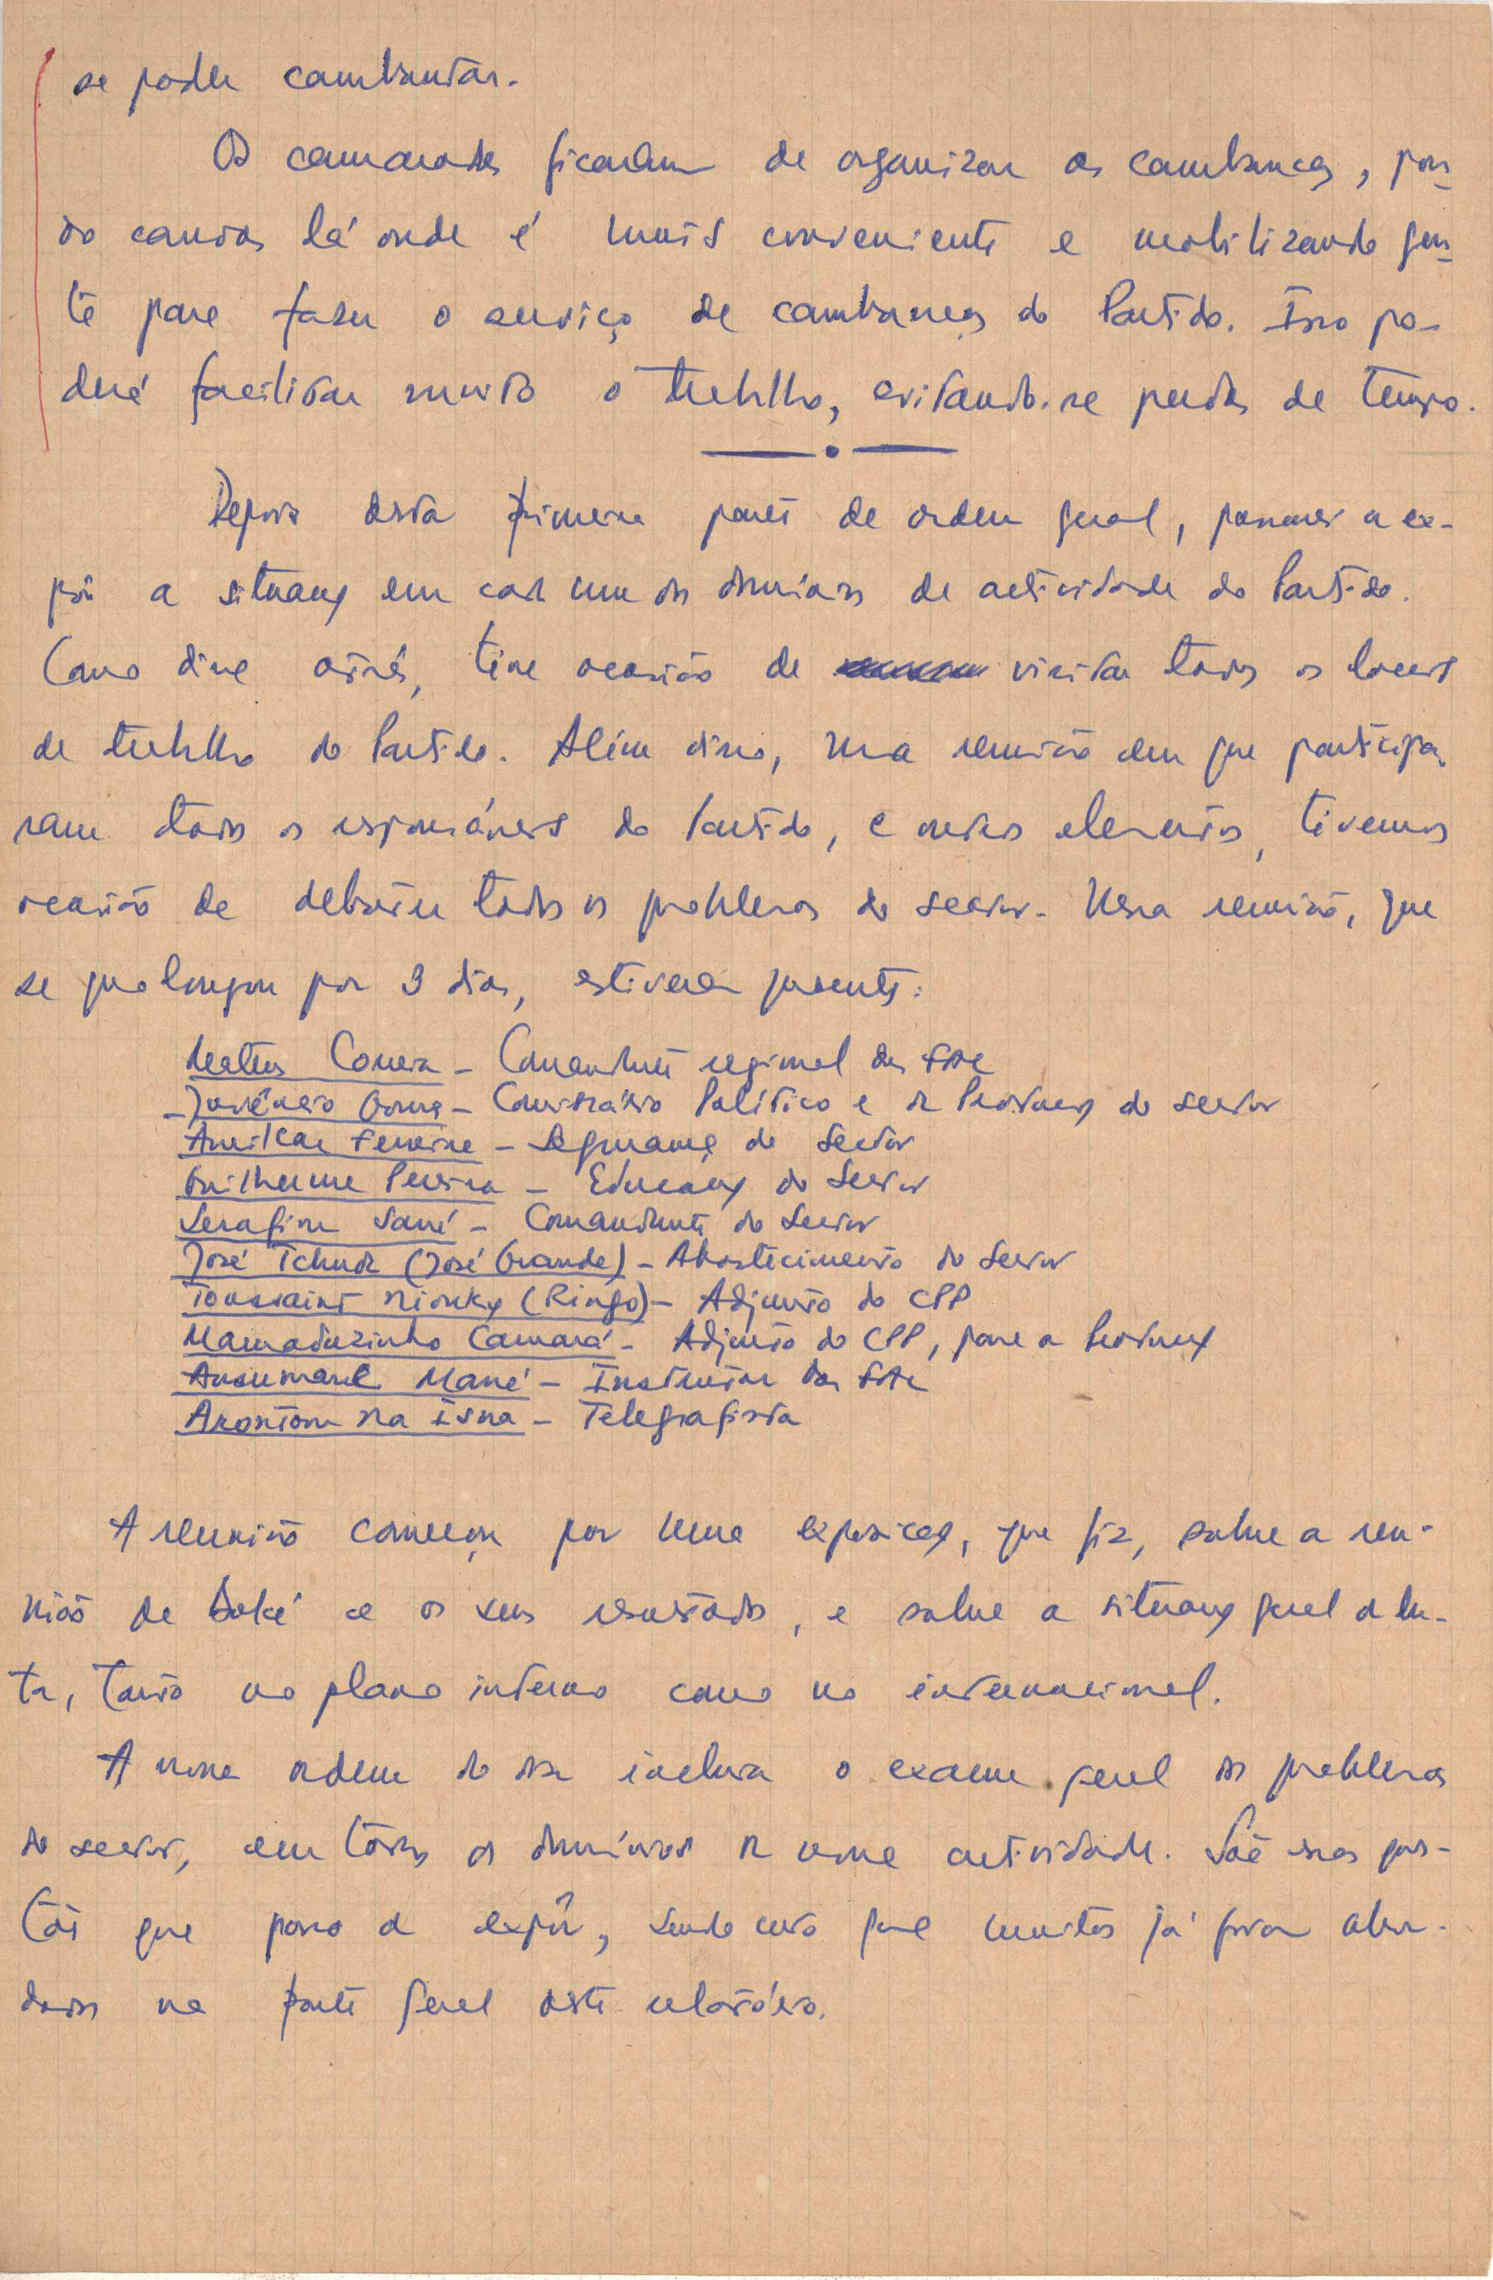 se poder cambantar.
Os camaradas ficaram de organizar as cambanças, pon-
do canoas lá onde é mais conveniente e mobilizando gen-
te para fazer o serviço de cambança do Partido. Isso po-
derá facilitar muito o trabalho, evitando-se perdas de tempo.
Depois desta primeira parte de ordem geral, passarei a ex-
pôr a situação em cada um dos domínios de actividade do Partido.
Como disse atrás, tive ocasião de visitar todos os locais
de trabalho do Partido. Além disso, na reunião em que participa-
ram todos os responsáveis do Partido, e outros elementos, tivemos
ocasião de debater todos os problemas do sector. Nessa reunião, que
se prolongou por 3 dias, estiveram presentes:
Mateus Correia - Comandante regional das FAL
- Juvêncio Gomes - Comissário Político e da Produção do sector
Amilcar Ferreira - Segurança do Sector
Guilherme Pereira - Educação do Sector
Serafim Sané - Comandante do Sector
José Tchuda (José Grande) - Abastecimento do Sector
Toussaint Niouky (Ringo) - Adjunto do CPP
Mamaduzinho Camará - Adjunto do CPP, para a Produção
Ansumané Mané - Instrutor das FAL
Na Isna - Telegrafista
A reunião começou por uma exposição, que fiz, sobre a reu-
nião de Boké e os seus resultados, e sobre a situação geral da lu-
ta, tanto no plano interno como no internacional.
A nossa ordem do dia incluia o exame geral dos problemas
do sector, em todos os domínios da nossa actividade. São essas ques-
tões que passo a expôr, sendo certo que muitas já foram abor-
dadas na parte geral deste relatório.